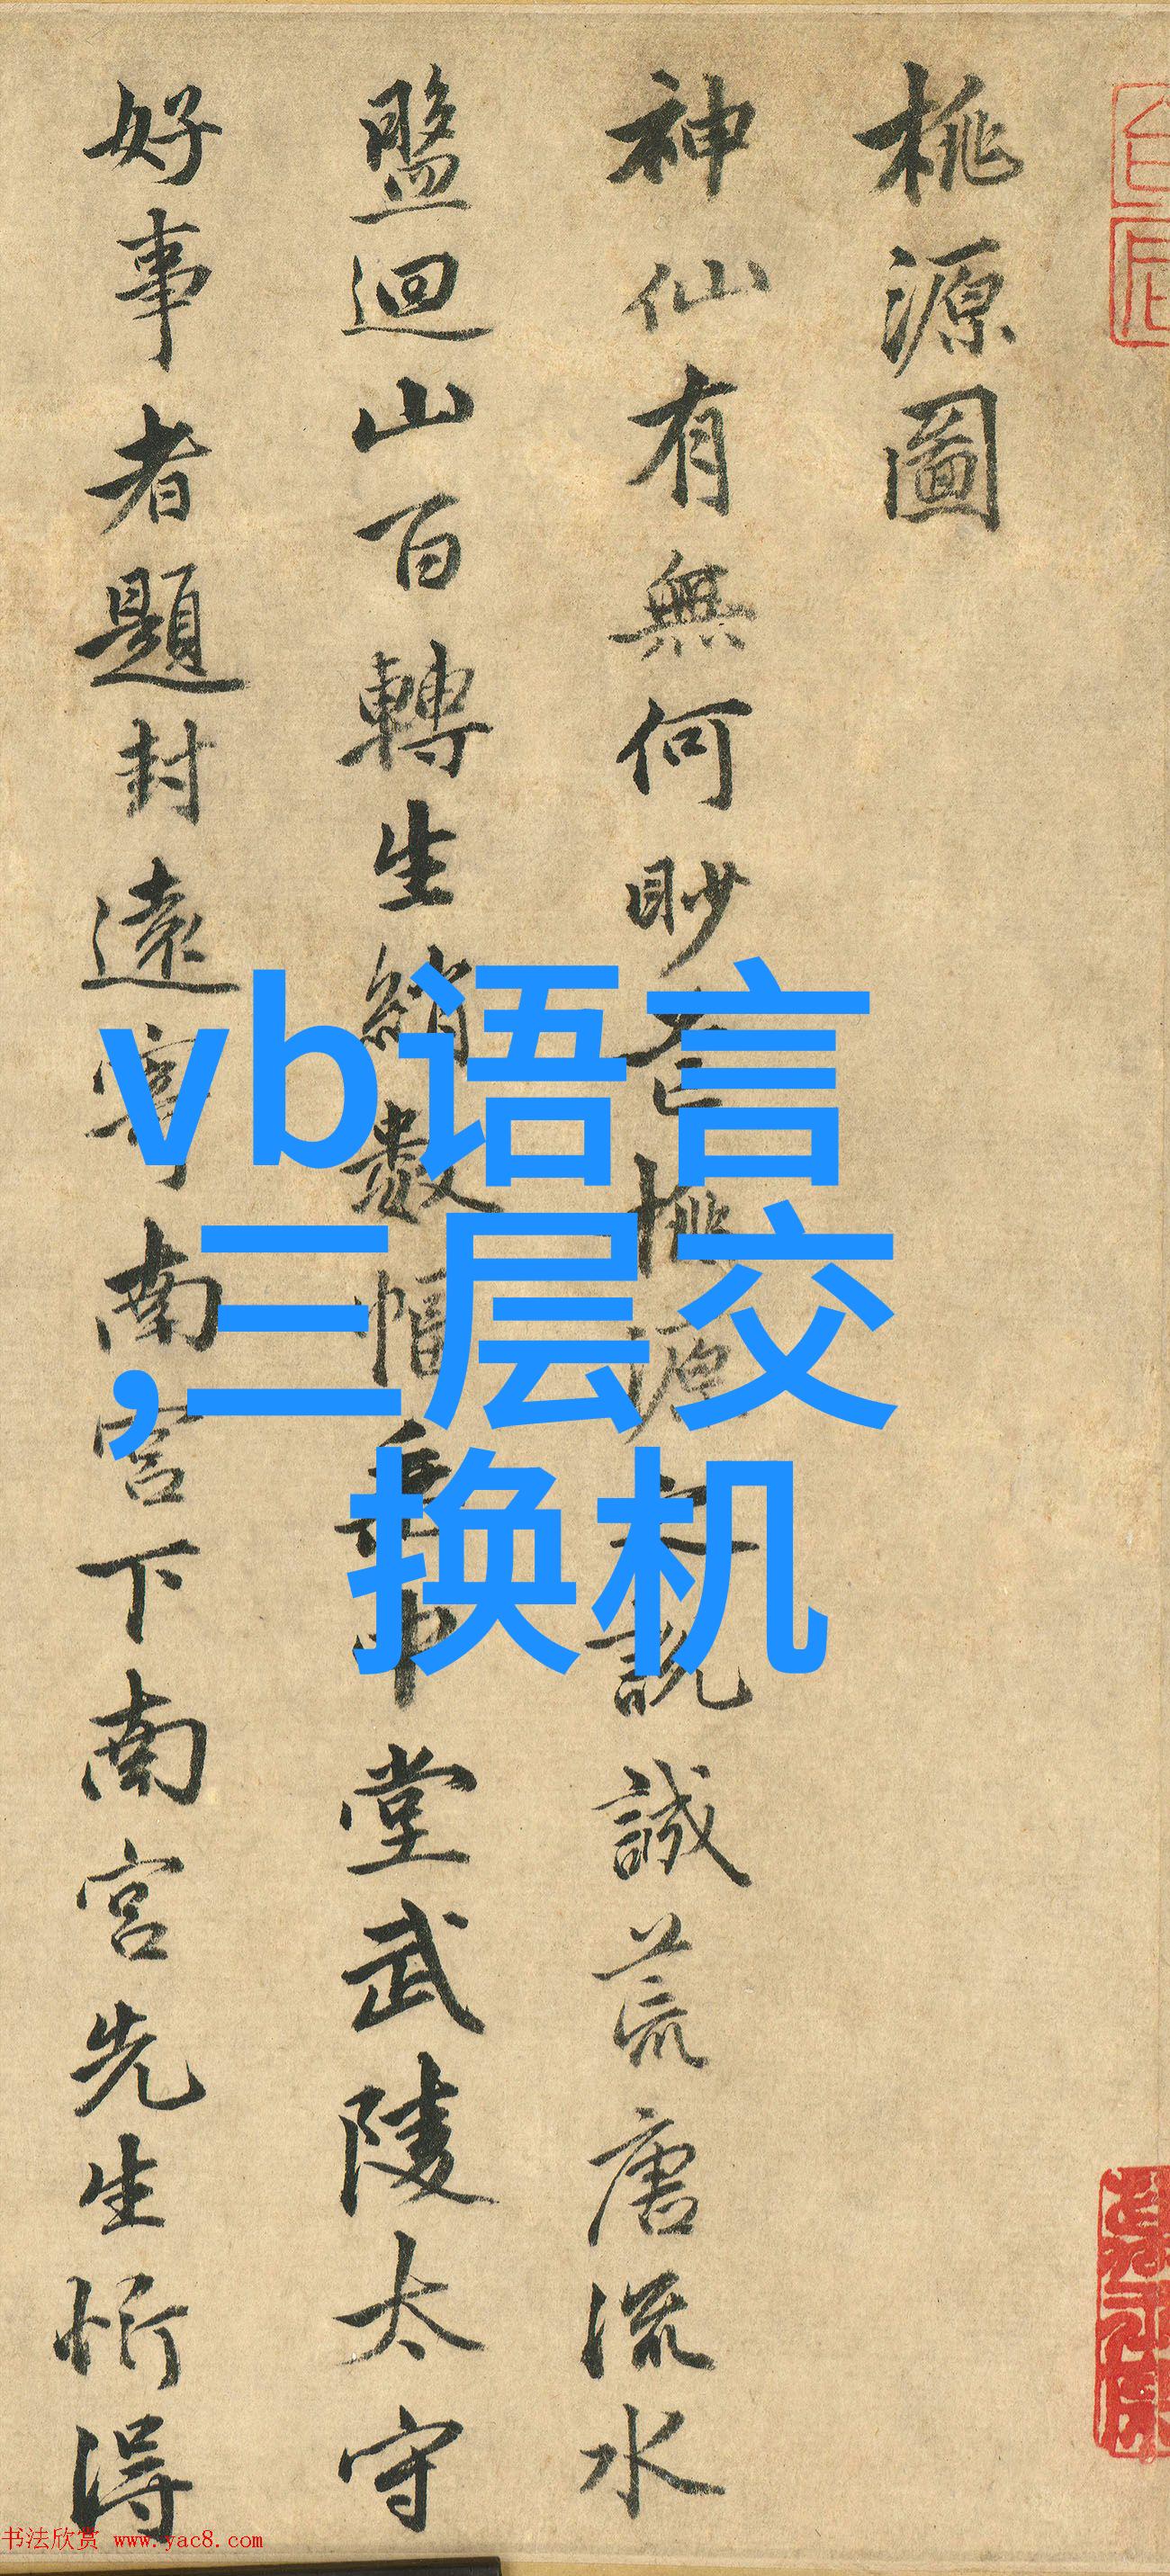 桃源圖
神仙有無何眇芒桃源之說誠荒唐流水
盤迴山百轉生綃數幅垂中堂武陵太守
好事者題封遠寄南宮下南宮先生忻得
vb语言
,三层交
换机
书法欣赏 www.yac8.com